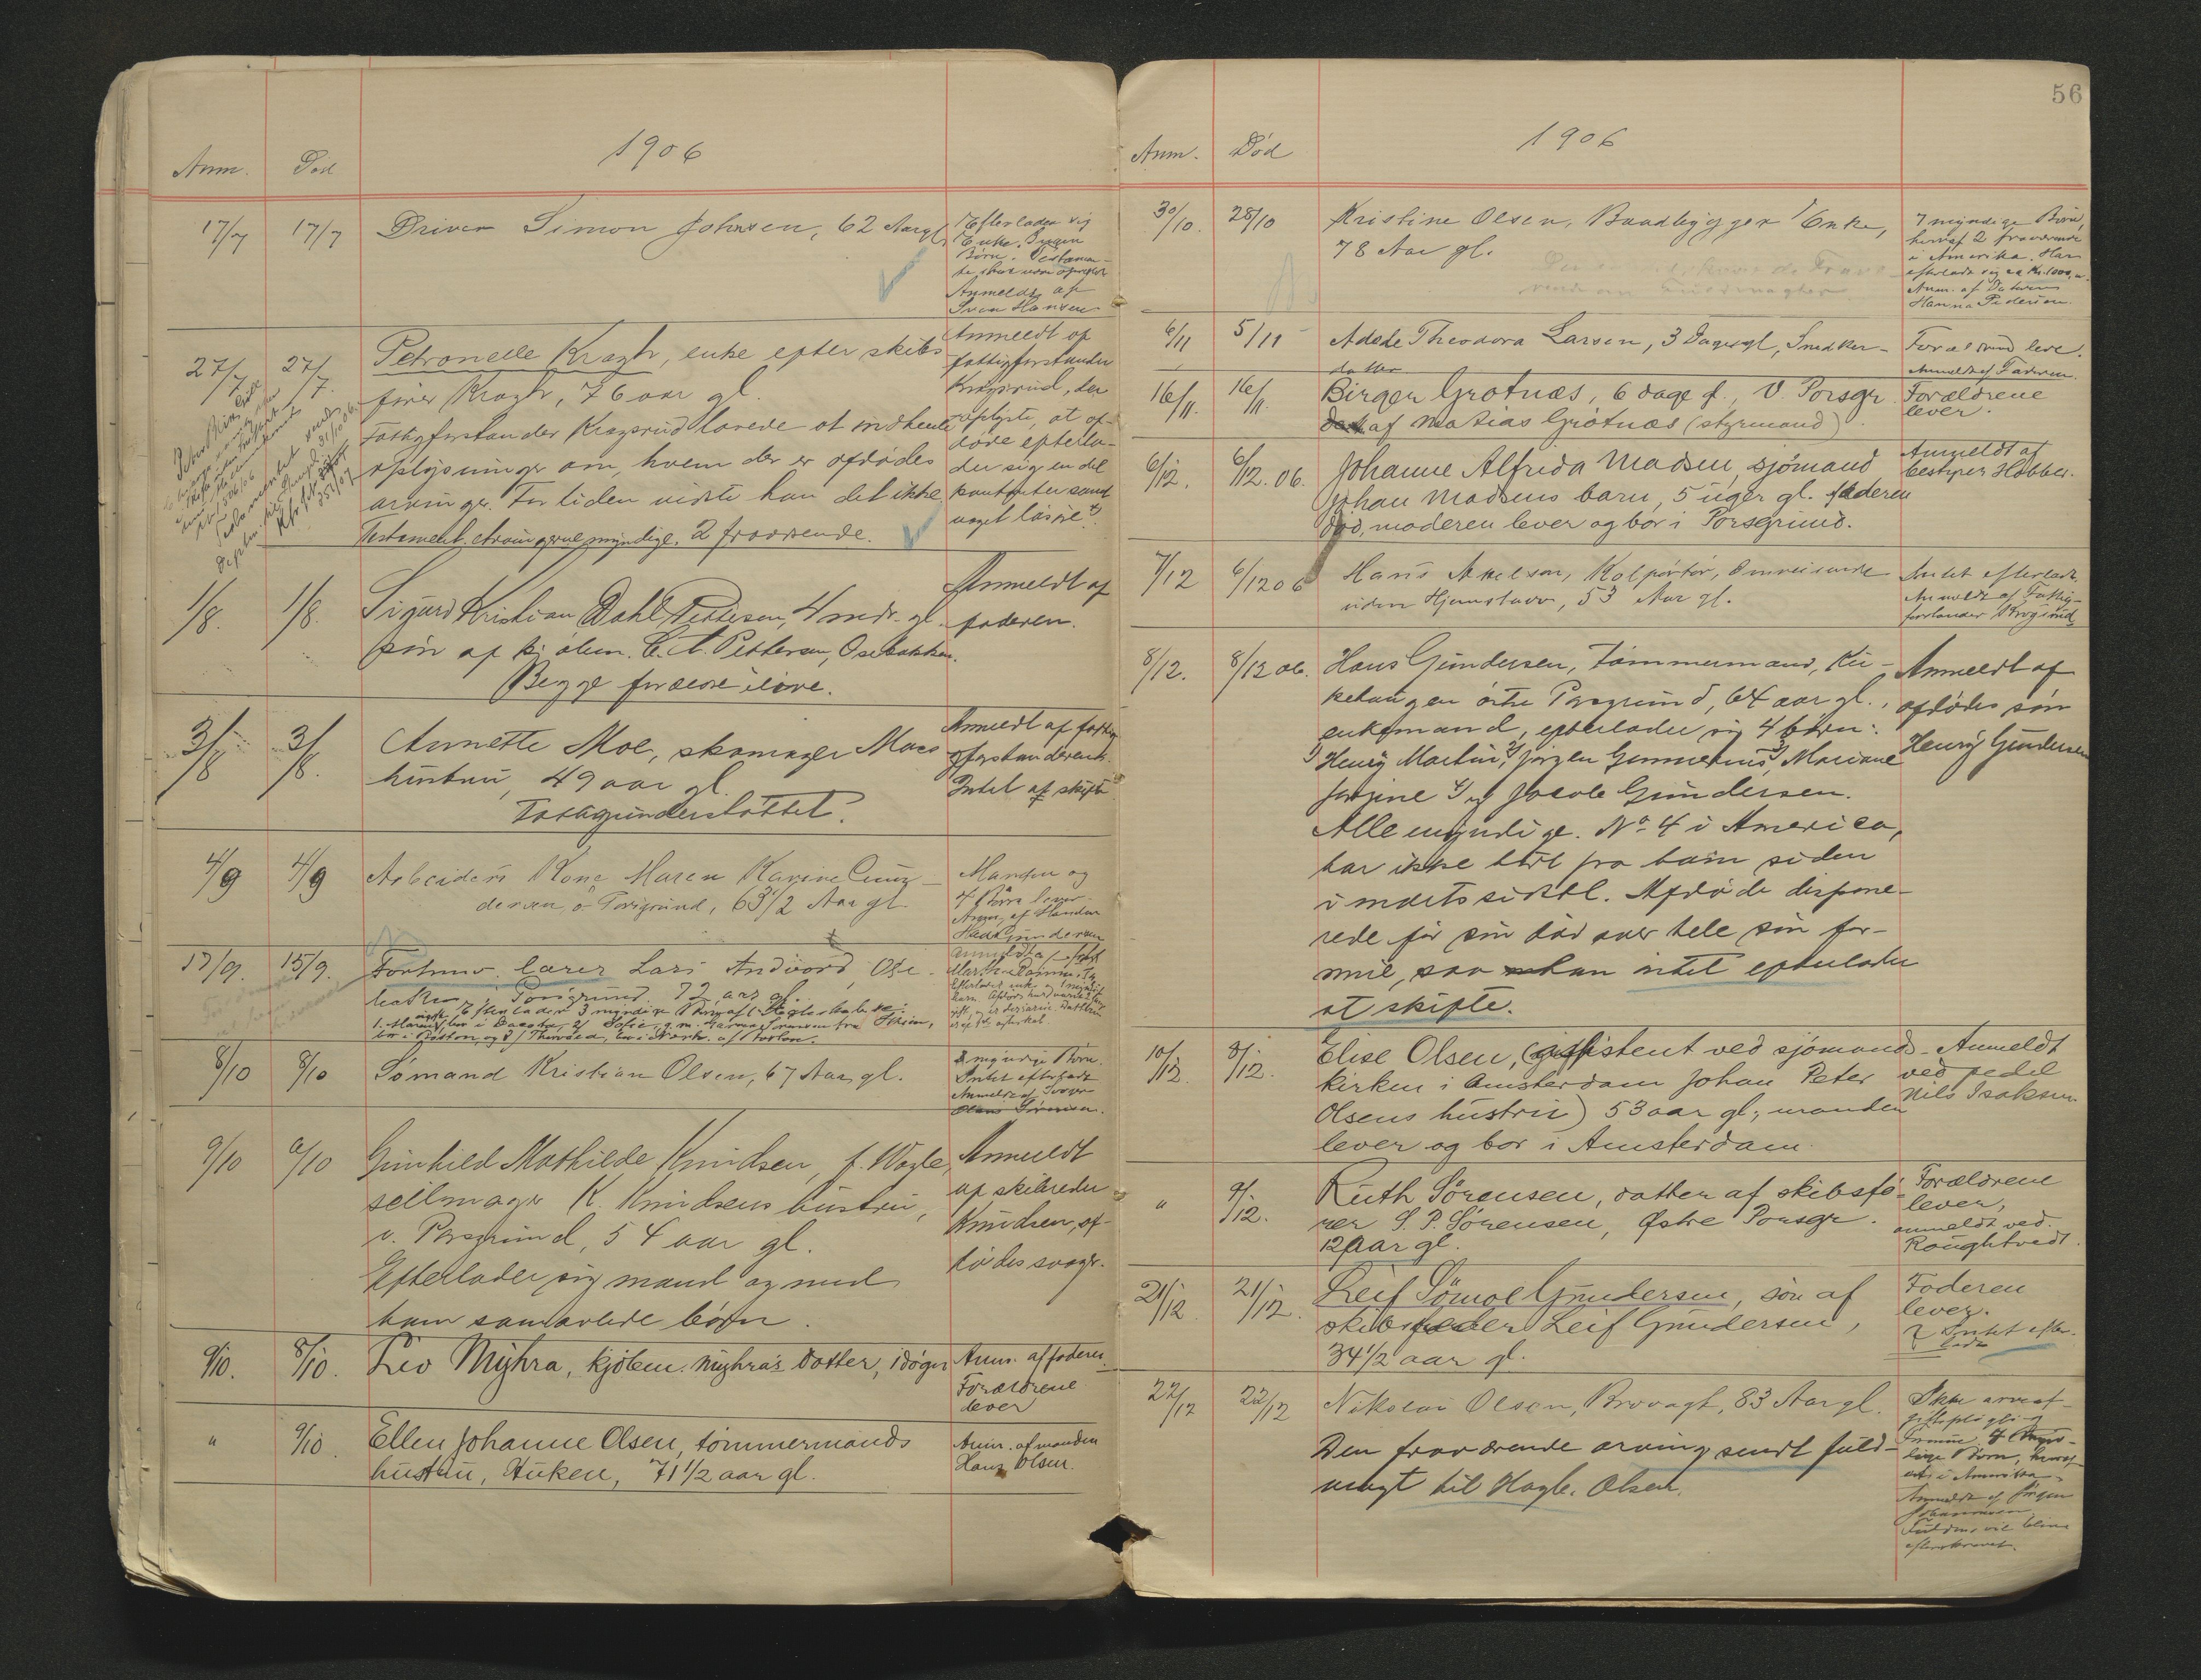 1906
Anm. Død
17/7 17/7 Driver Simon Johnsen, 62 Aar gl.
Efterlader sig
Enke. Ingen
Børn. Testamen-
te skal være oprettet
Anmeldt af
Svan Hansen
27/7 27/7. Petronelle Kragh, enke efter skibs
fører Kragh, 76 aar gl.
Fattigforstander Krogsrud lovede at indhente
oplysninger om, hvem der er afdødes
arvinger. For tiden vidste han det ikke
Testament. Arvingerne myndige. 2 fraværende.
Anmeldt af
fattigforstander
Krogsrud, der
oplyste, at af-
døde efterla-
der sig en del
panteretter samt
noget løsøre.
1/8. 1/8. Sigurd Kristian Dahl Pettersen, 4 mdr. gl.
søn af kjøbm. C. A. Pettersen, Osebakken.
Begge forældre ilive.
Anmeldt af
faderen.
3/8 3/8. Annette Moe, skomager Moes
hustru, 49 aar gl.
Fattigunderstøttet.
Anmeldt af fattig
forstanderen.
Intet at skifte
4/9 4/9 Arbeiders Kone Maren Karine Gun-
dersen, ø. Porsgrund, 63 1/2 Aar gl
Manden og
4 Børn lever.
Anm. af Manden
Gundersen
15/9. 15/9. Forhenv. lærer Lars Andvord, Ose-
bakken, Porsgrund 72 aar gl.
Efterlader 3 myndige Børn
8/10 8/10 Sømand Kristian Olsen, 67 Aar gl.
myndige Børn.
Intet efterladt
Anmeldt af
9/10 9/10 Gunhild Mathilde Knudsen, f. Wogle,
seilmager K. Knudsens hustru,
v. Porsgrund, 54 aar gl.
Efterlader sig mand og med
ham samavlede børn.
Anmeldt
af skibsreder
Knudsen, af-
dødes svoger.
9/10. 8/10. Liv Myhra, kjøbm. Myhra's datter, 1 døgn
Anm. af faderen
Forældrene
lever
" 9/10 Ellen Johanne Olsen, tømmermands
hustru, Huken, 71 1/2 aar gl.
Anm. af manden
Hans Olsen.
56
1906
Anm. Død
30/10. 28/10 Kristine Olsen, Baadbygger Enke,
78 Aar gl.
7 myndige Børn,
heraf 2 fraværende
i Amerika. Har
efterladt sig ca Kr. 1000,
Anm. af Datteren
Hanna Pedersen.
6/11 5/11 Adele Theodora Larsen, 3 Dage gl, Snedker-
datter
Forældrene leve.
Anmeldt af Faderen.
16/11. 16/11. Birger Grotnæs, 6 dage g., V. Porsgr.
af Matias Grotnæs (styrmand)
Forældrene
lever.
6/12. 6/12.06. Johanne Alfrida Madsen, sjømand
Johan Madsens barn, 5 uger gl. faderen
død, moderen lever og bor i Porsgrund.
Anmeldt af
bestyrer
7/12 6/12 06 Hans Akelson, Kolportør, Omreisende
uden Hjemstavn, 53 Aar gl.
Intet efterladt.
Anmeldt af Fattig-
forstander Krogsrud
8/12. 8/12 06. Hans Gundersen, Tømmermand, Kir-
kehaugen østre Porsgrund, 64 aar gl.,
enkemand, efterlader sig 4 børn:
1) Henry Martin, 2) Jørgen Gunnerius, 3) Mariane
Jorgine 4) og Jacob Gundersen.
Alle myndige. No. 4 i America,
har ikke hørt fra ham siden
i mdts sidstl. Afdøde dispone-
rede før sin død over hele sin for-
mue, saa han intet efterlader
at skifte.
Anmeldt af
afdødes søn
Henry Gundersen
10/12. 8/12. Elise Olsen, (assistent ved sjømands-
kirken i Amsterdam Johan Peter
Olsens hustru) 53 aar gl., manden
lever og bor i Amsterdam.
Anmeldt
ved pedel
Nils Isaksen
" 9/12. Ruth Sørensen, datter af skibsfø-
rer S. P. Sørensen, Østre Porsgr.
12 aar gl.
Forældrene
lever,
anmeldt ved.
Roughtvedt.
21/12 21/12. Leif Gundersen, søn af
skibsreder Leif Gundersen,
34 1/2 aar gl.
Faderen
lever.
Intet efter-
ladt
22/12 22/12 Nikolai Olsen, Brovagt, 83 Aar gl.
Den fraværende arving sendt fuld-
magt til Hagb. Olsen.
Ikke arveaf-
giftspligtig
Børn,
i Amerika
Anmeldt af Jørgen
Johannessen